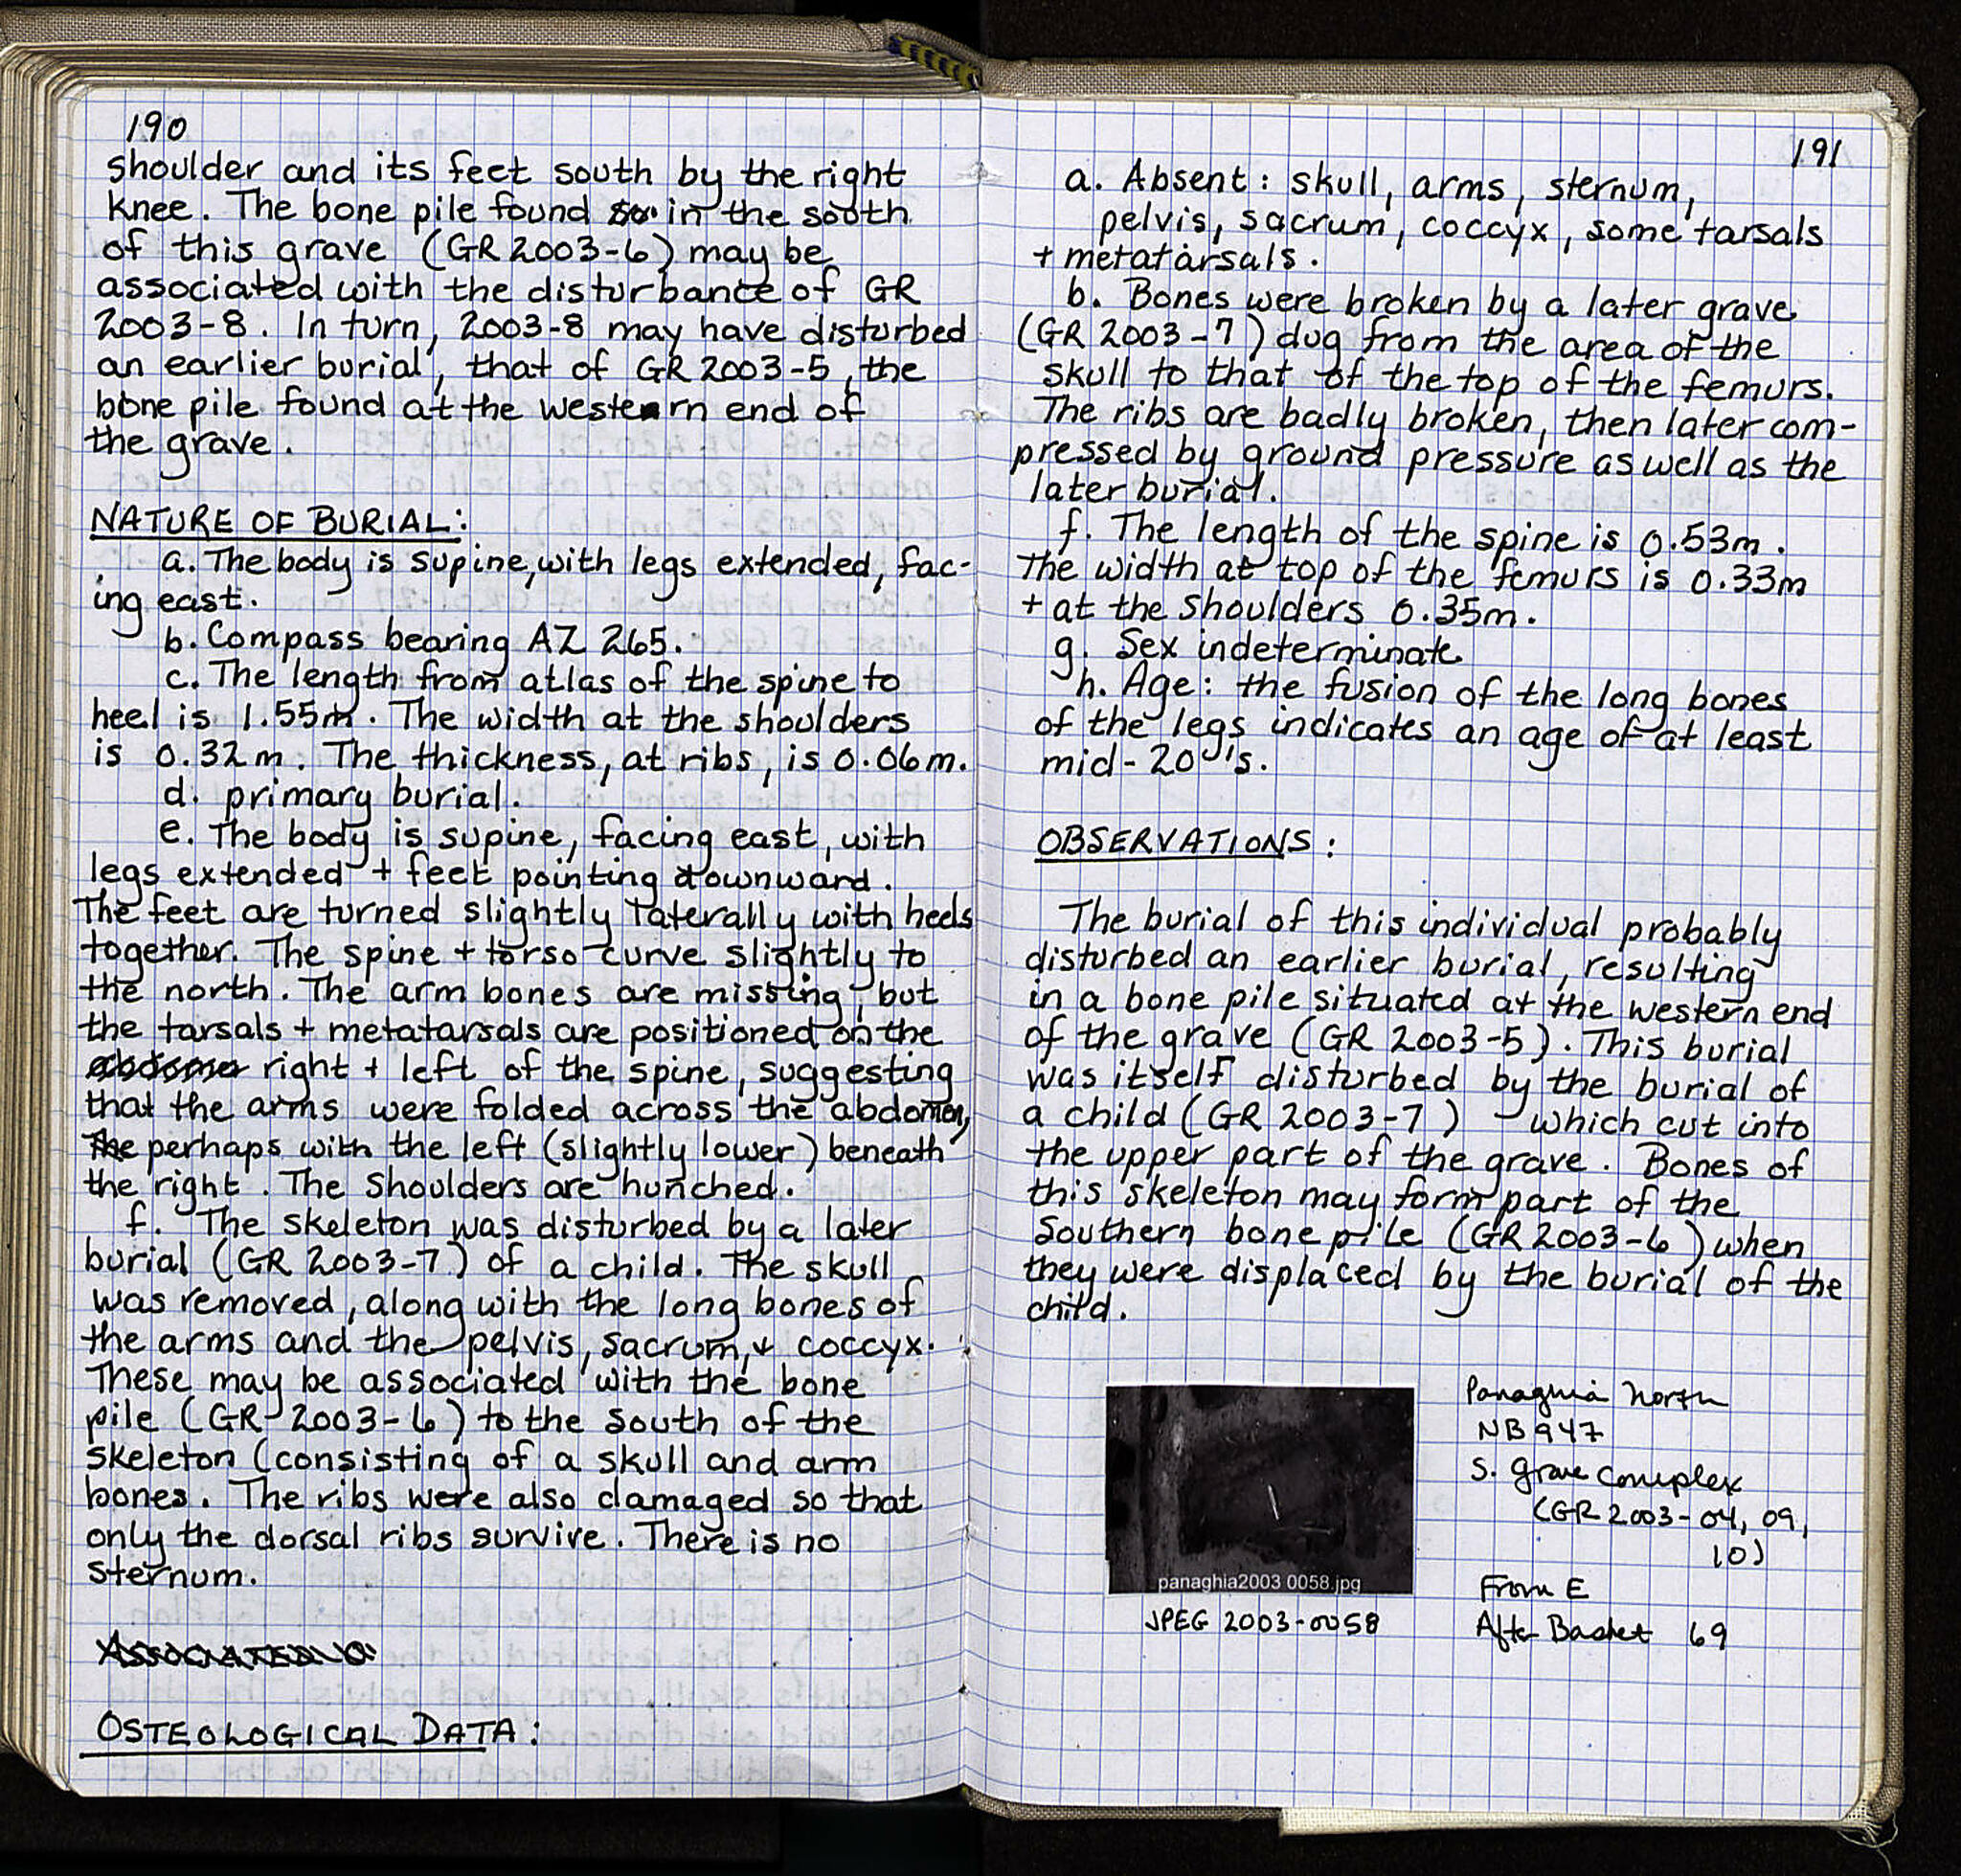 190
shoulder and its feet south by the right
knee. The bone pile found in the south
of this grave (GR 2003-6) may be
associated with the disturbance of GR
2003-8. In turn, 2003-8 may have disturbed
an earlier burial, that of GR 2003-5, the
bone pile found at the western end of
the grave.
NATURE OF BURIAL:
a. The body is supine, with legs extended, fac-
ing east.
b. Compass bearing AZ 265.
c. The length from atlas of the spine to
heel is 1.55m. The width at the shoulders
is 0.32m. The thickness, at ribs, is 0.06m.
d. primary burial.
e. The body is supine, facing east, with
legs extended + feet pointing downward.
The feet are turned slightly laterally with heels
together. The spine + torso curve slightly to
the north. The arm bones are missing, but
the tarsals + metatarsals are positioned on the
right + left of the spine, suggesting
that the arms were folded across the abdomen,
perhaps with the left (slightly lower) beneath
the right. The shoulders are hunched.
f. The skeleton was disturbed by a later
burial (GR 2003-7) of a child. The skull
was removed, along with the long bones of
the arms and the pelvis, sacrum, + coccyx.
These may be associated with the bone
pile (GR 2003-6) to the south of the
skeleton (consisting of a skull and arm
bones. The ribs were also damaged so that
only the dorsal ribs survive. There is no
sternum.
OSTEOLOGICAL DATA:
191
a. Absent: skull, arms, sternum,
pelvis, sacrum, coccyx, some tarsals
+ metatarsals.
b. Bones were broken by a later grave
(GR 2003-7) dug from the area of the
skull to that of the top of the femurs.
The ribs are badly broken, then later com-
pressed by ground pressure as well as the
later burial.
f. The length of the spine is 0.53m.
The width at top of the femurs is 0.33m
+ at the shoulders 0.35m.
g. Sex indeterminate
h. Age: the fusion of the long bones
of the legs indicates an age of at least
mid-20's.
OBSERVATIONS:
The burial of this individual probably
disturbed an earlier burial, resulting
in a bone pile situated at the western end
of the grave (GR 2003-5). This burial
was itself disturbed by the burial of
a child (GR 2003-7) which cut into
the upper part of the grave. Bones of
this skeleton may form part of the
Southern bone pile (GR 2003-6) when
they were displaced by the burial of the
child.
panaghia2003 0058.jpg
JPEG 2003-0058
Panaghia North
NB 947
S. grave complex
(GR 2003-04, 09,
10)
From E
After Basket 69